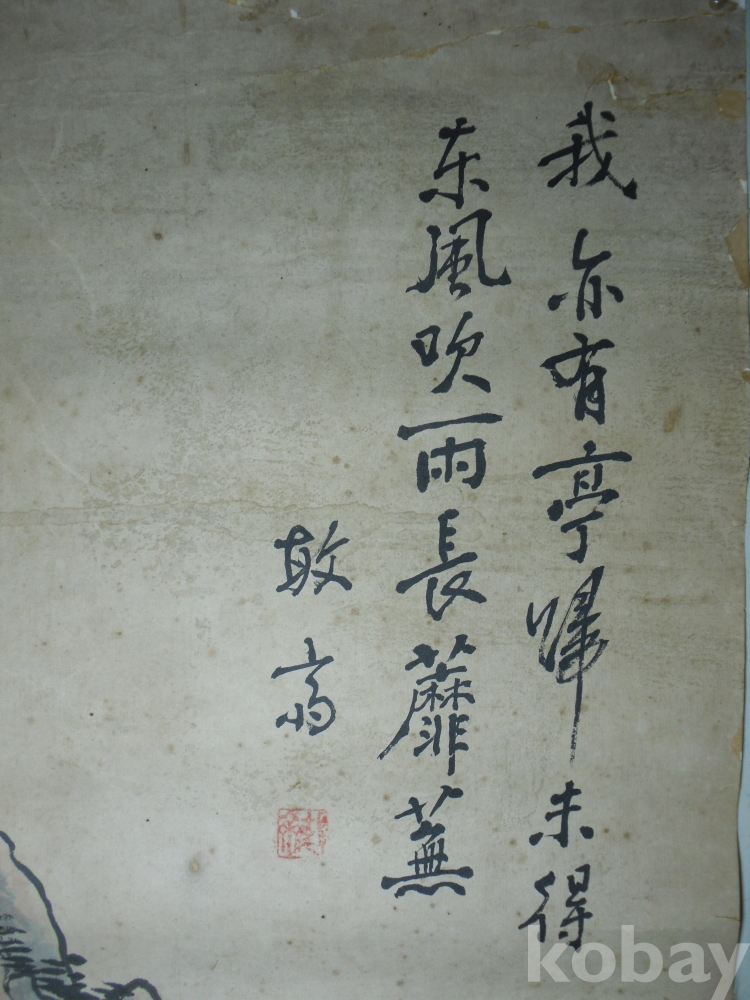 我亦有亭歸未得
东風吹雨長蘼蕪
散翁
kobay